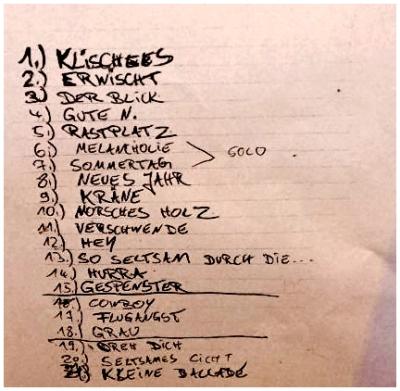 1.) KLISCHEES
2.) ERWISCHT
3.) DER BLICK
4.) GUTE N.
5.) RASTPLATZ
6.) MELANCHOLIE
SOLO
7.) SOMMERTAG
8.) NEUES JAHR
9.) KRÄNE
10.) MORSCHES HOLZ
11.) VERSCHWENDE
12.) HEY
13.) SO SELTSAM DURCH DIE...
14.) HURRA
15.) GESPENSTER
16.) COWBOY
17.) FLUGANGST
18.) GRAU
19.) DREH DICH
20.) SELTSAMES LICHT
21.) KLEINE BALLADE